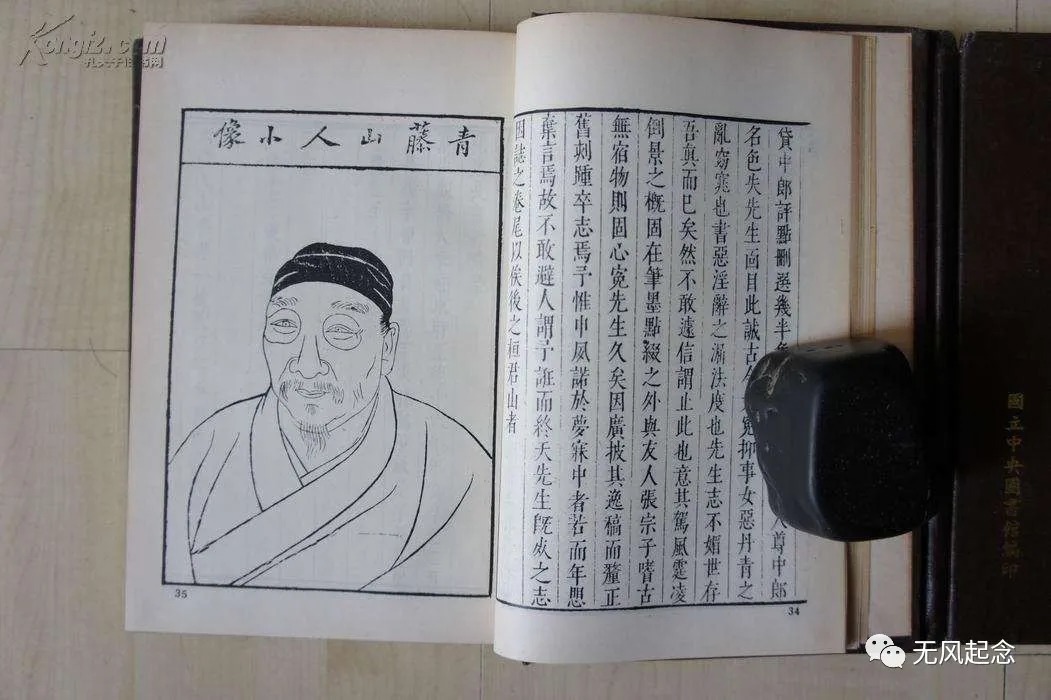 Kongfz.com
孔夫子旧书网
貸中郎評點刪選幾半
尊中郎
名色失先生面目此誠古
抑事女惡丹青之
亂窈窕也書惡淫辭之漏法度也先生志不媚世存
吾真而已矣然不敢遠信謂止此也意其駕風霆凌
倒景之概固在筆墨點綴之外與友人張宗子嗜古
無宿物則固心冤先生久矣因廣披其逸稿而釐正
舊刻踵卒志焉予惟中夙諾於夢寐中者若而年思
棄言焉故不敢避人謂予誑而終夭先生旣夾之志
因誌之卷尾以俟後之桓君山者
34
青藤山人小像
35
國立中央圖書館編印
无风起念